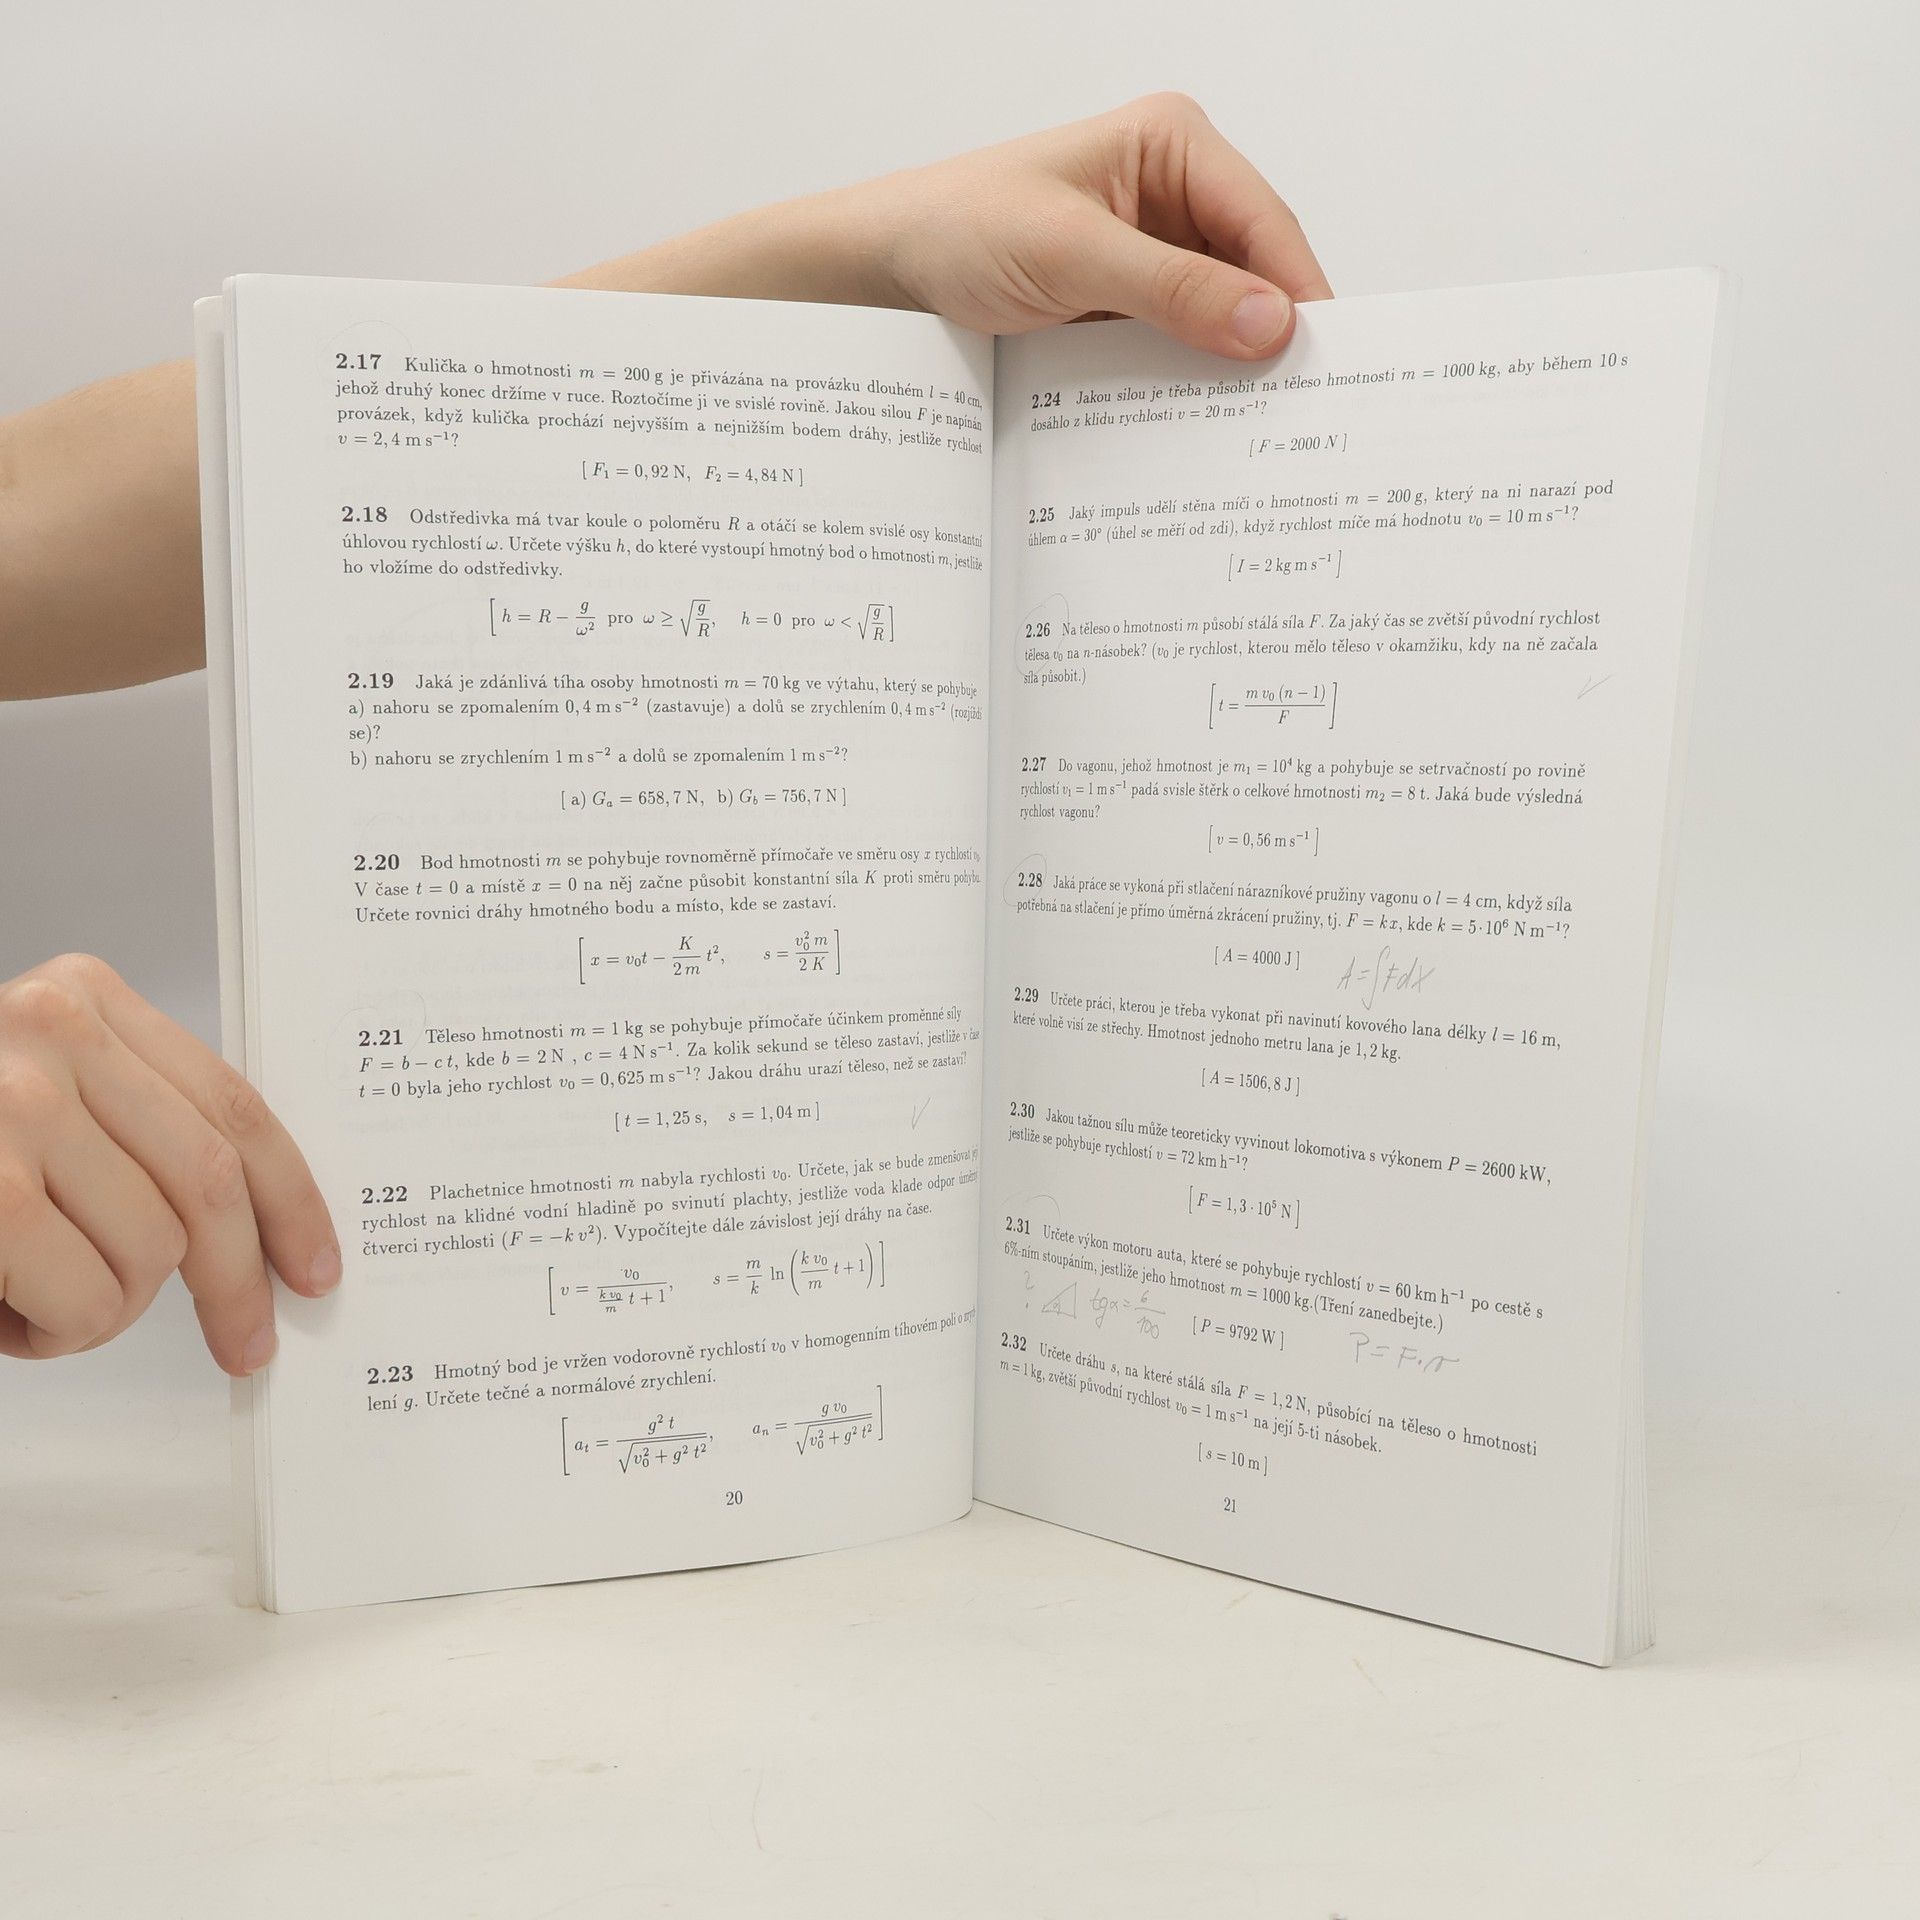 2.17 Kulička o hmotnosti m = 200 g je přivázána na provázku dlouhém l = 40 cm,
jehož druhý konec držíme v ruce. Roztočíme ji ve svislé rovině. Jakou silou F je napínán
provázek, když kulička prochází nejvyšším a nejnižším bodem dráhy, jestliže rychlost
v = 2,4 m s⁻¹?
[ F₁ = 0,92 N, F₂ = 4,84 N ]
2.18 Odstředivka má tvar koule o poloměru R a otáčí se kolem svislé osy konstantní
úhlovou rychlostí ω. Určete výšku h, do které vystoupí hmotný bod o hmotnosti m, jestliže
ho vložíme do odstředivky.
[ h = R − g/ω² pro ω ≥ √(g/R), h = 0 pro ω < √(g/R) ]
2.19 Jaká je zdánlivá tíha osoby hmotnosti m = 70 kg ve výtahu, který se pohybuje
a) nahoru se zpomalením 0,4 m s⁻² (zastavuje) a dolů se zrychlením 0,4 m s⁻² (rozjíždí
se)?
b) nahoru se zrychlením 1 m s⁻² a dolů se zpomalením 1 m s⁻²?
[ a) Gₐ = 658,7 N, b) G_b = 756,7 N ]
2.20 Bod hmotnosti m se pohybuje rovnoměrně přímočaře ve směru osy x rychlostí v₀.
V čase t = 0 a místě x = 0 na něj začne působit konstantní síla K proti směru pohybu.
Určete rovnici dráhy hmotného bodu a místo, kde se zastaví.
[ x = v₀t − K/(2 m) t², s = v₀² m/(2 K) ]
2.21 Těleso hmotnosti m = 1 kg se pohybuje přímočaře účinkem proměnné síly
F = b − c t, kde b = 2 N , c = 4 N s⁻¹. Za kolik sekund se těleso zastaví, jestliže v čase
t = 0 byla jeho rychlost v₀ = 0,625 m s⁻¹? Jakou dráhu urazí těleso, než se zastaví?
[ t = 1,25 s, s = 1,04 m ]
2.22 Plachetnice hmotnosti m nabyla rychlosti v₀. Určete, jak se bude zmenšovat její
rychlost na klidné vodní hladině po svinutí plachty, jestliže voda klade odpor úměrný
čtverci rychlosti (F = −k v²). Vypočítejte dále závislost její dráhy na čase.
[ v = v₀/((k v₀/m) t + 1), s = m/k ln (k v₀/m t + 1) ]
2.23 Hmotný bod je vržen vodorovně rychlostí v₀ v homogenním tíhovém poli o zrych
lení g. Určete tečné a normálové zrychlení.
[ aₜ = g² t/√(v₀² + g² t²), aₙ = g v₀/√(v₀² + g² t²) ]
20
2.24 Jakou silou je třeba působit na těleso hmotnosti m = 1000 kg, aby během 10 s
dosáhlo z klidu rychlosti v = 20 m s⁻¹?
[ F = 2000 N ]
2.25 Jaký impuls udělí stěna míči o hmotnosti m = 200 g, který na ni narazí pod
úhlem α = 30° (úhel se měří od zdi), když rychlost míče má hodnotu v₀ = 10 m s⁻¹?
[ I = 2 kg m s⁻¹ ]
2.26 Na těleso o hmotnosti m působí stálá síla F. Za jaký čas se zvětší původní rychlost
tělesa v₀ na n-násobek? (v₀ je rychlost, kterou mělo těleso v okamžiku, kdy na ně začala
síla působit.)
[ t = m v₀ (n − 1)/F ]
2.27 Do vagonu, jehož hmotnost je m₁ = 10⁴ kg a pohybuje se setrvačností po rovině
rychlostí v₁ = 1 m s⁻¹ padá svisle štěrk o celkové hmotnosti m₂ = 8 t. Jaká bude výsledná
rychlost vagonu?
[ v = 0,56 m s⁻¹ ]
2.28 Jaká práce se vykoná při stlačení nárazníkové pružiny vagonu o l = 4 cm, když síla
potřebná na stlačení je přímo úměrná zkrácení pružiny, tj. F = k x, kde k = 5·10⁶ N m⁻¹?
[ A = 4000 J ] A = ∫F dx
2.29 Určete práci, kterou je třeba vykonat při navinutí kovového lana délky l = 16 m,
které volně visí ze střechy. Hmotnost jednoho metru lana je 1,2 kg.
[ A = 1506,8 J ]
2.30 Jakou tažnou sílu může teoreticky vyvinout lokomotiva s výkonem P = 2600 kW,
jestliže se pohybuje rychlostí v = 72 km h⁻¹?
[ F = 1,3 · 10⁵ N ]
2.31 Určete výkon motoru auta, které se pohybuje rychlostí v = 60 km h⁻¹ po cestě s
6%-ním stoupáním, jestliže jeho hmotnost m = 1000 kg.(Tření zanedbejte.)
? tgα = 6/100 [ P = 9792 W ] P = F.v
2.32 Určete dráhu s, na které stálá síla F = 1,2 N, působící na těleso o hmotnosti
m = 1 kg, zvětší původní rychlost v₀ = 1 m s⁻¹ na její 5-ti násobek.
[ s = 10 m ]
21